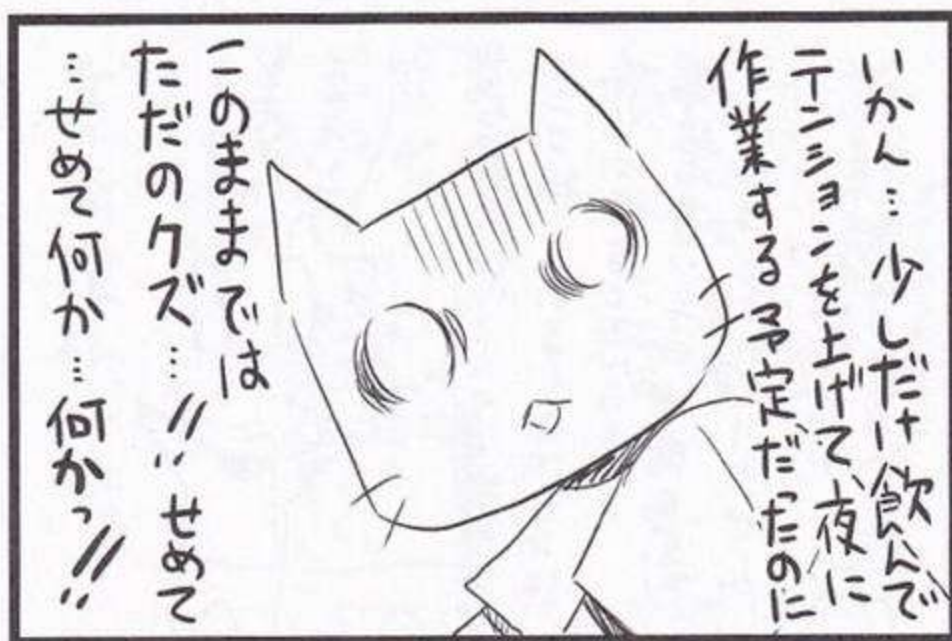 いかん…少しだけ飲んで
テンションを上げて、夜に
作業する予定だったのに
このままでは
ただのクズ…!!せめて
…せめて何か…何かっ!!